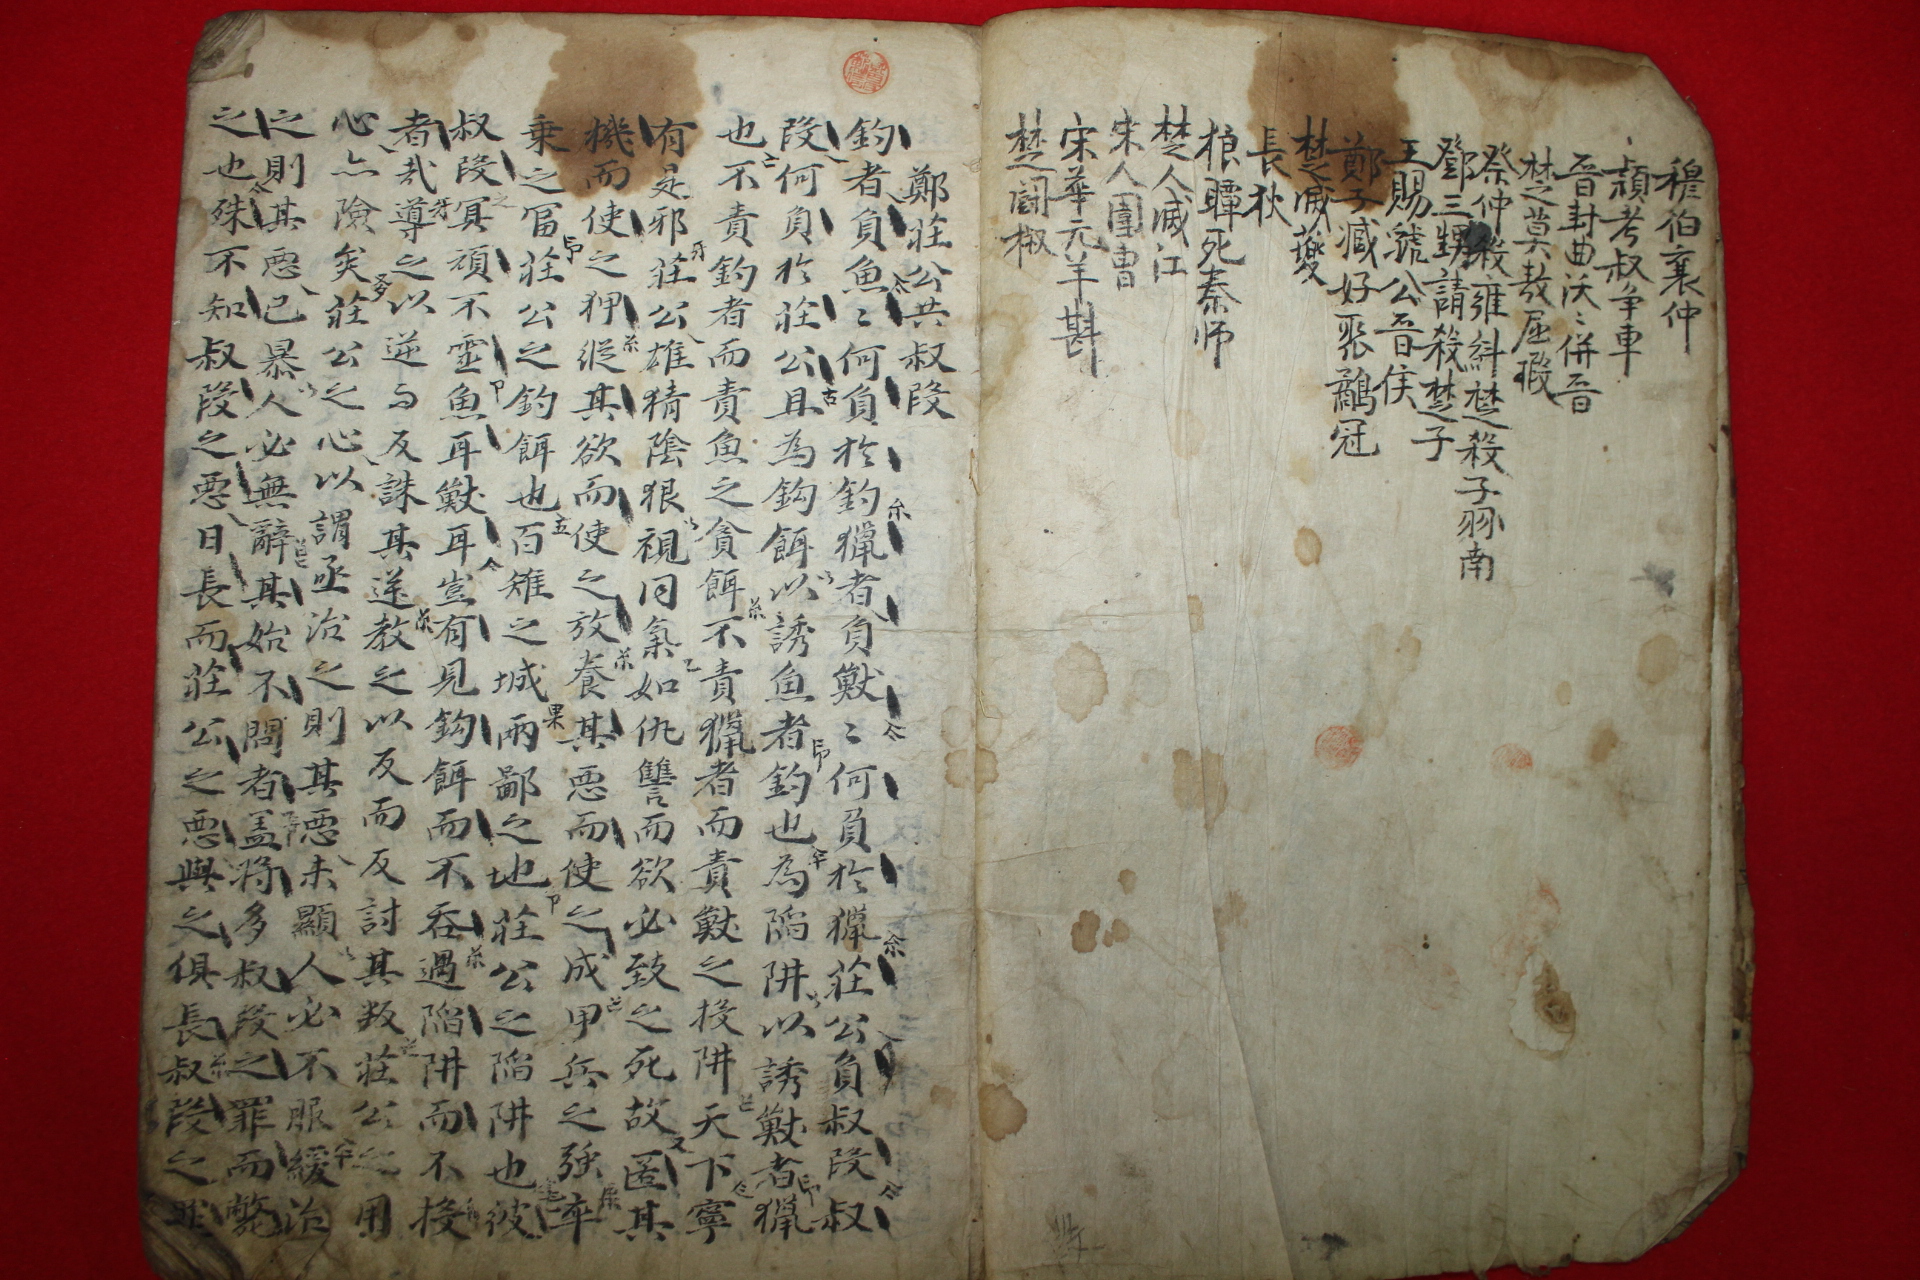 穆伯襄仲
頴考叔争車
晉封曲沃〻併晉
楚莫敖屈瑕
祭仲殺雍糾楚殺子羽南
鄧三甥請殺楚子
王賜虢公晉侯
鄭子臧好聚鷸冠
楚滅夔
長狄
狼瞫死秦师
楚人滅江
宋人圍曹
宋華元羊斟
楚鬪椒
鄭莊公共叔段
釣者負魚〻何負於釣獵者負獸〻何負於獵莊公負叔段叔
段何負於莊公且為鈎餌以誘魚者釣也為陷阱以誘獸者獵
也不責釣者而責魚之貪餌不責獵者而責獸之投阱天下寧
有是邪莊公雄猜陰狠視同氣如仇讐而欲必致之死故匿其
機而使之狎縱其欲而使之放養其惡而使之成甲兵之強卒
乗之冨莊公之釣餌也百雉之城兩鄙之地莊公之陷阱也彼
叔段冥頑不靈魚耳獸耳豈有見鈎餌而不吞過陷阱而不投
者哉導之以逆而反誅其逆教之以反而反討其叛莊公之用
心亦險矣莊公之心以謂亟治之則其惡未顯人必不服緩治
之則其惡已暴人必無辭其始不問者盖將多叔段之罪而斃
之也殊不知叔段之惡日長而莊公之惡與之俱長叔段之罪